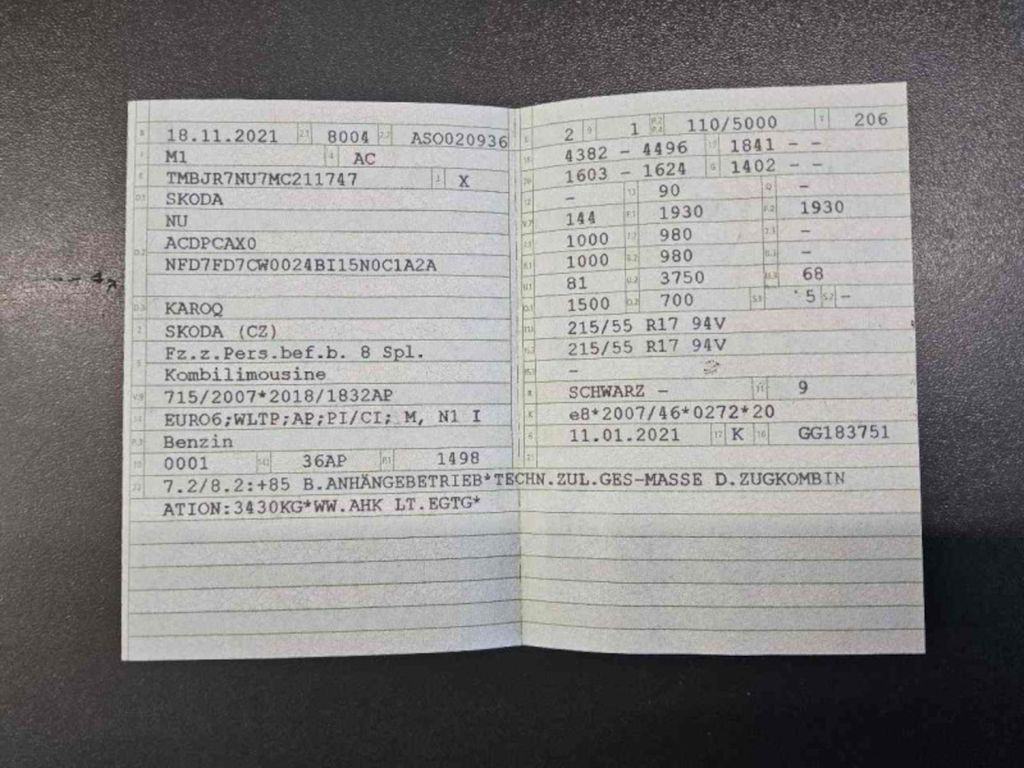 18.11.2021 8004 ASO020936
M1 AC
TMBJR7NU7MC211747 X
SKODA
NU
ACDPCAX0
NFD7FD7CW0024BI15N0C1A2A
KAROQ
SKODA (CZ)
Fz.z.Pers.bef.b. 8 Spl.
Kombilimousine
715/2007*2018/1832AP
EURO6;WLTP;AP;PI/CI; M, N1 I
Benzin
0001 36AP 1498
7.2/8.2:+85 B.ANHÄNGEBETRIEB*TECHN.ZUL.GES-MASSE D.ZUGKOMBIN
ATION:3430KG*WW.AHK LT.EGTG*
2 1 110/5000 206
4382 - 4496 1841 - -
1603 - 1624 1402 - -
- 90 -
144 1930 1930
1000 980 -
1000 980 -
81 3750 68
1500 700 5 -
215/55 R17 94V
215/55 R17 94V
-
SCHWARZ - 9
e8*2007/46*0272*20
11.01.2021 K GG183751